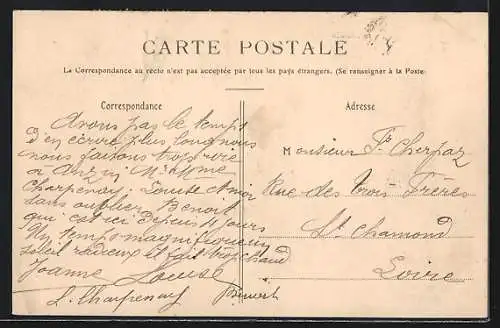 CARTE POSTALE
La Correspondance au recto n'est pas acceptée par tous les pays étrangers. (Se renseigner à la Poste)
Correspondance
Adresse
Avons pas le temps
d'en écrire plus long nous
nous faisons trop
à Mr & Mme
Charpenay, Louise
sans oublier Benoit
qui est ici depuis 4 jours
Un temps magnifique un
soleil radieux et fait trop chaud
Joanne Louise
L. Charpenay Benoit
Monsieur Fs Cherpaz
Rue des trois Frères
St Chamond
Loire